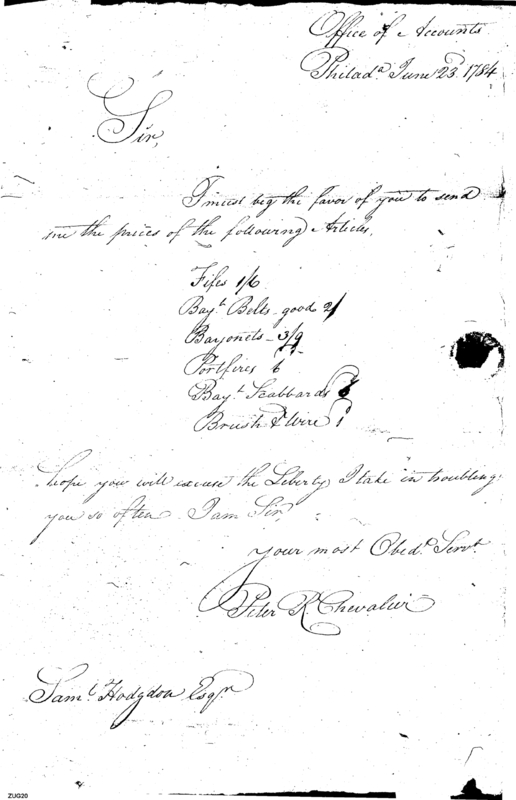 Office of Accounts
Philada June 23d 1784
Sir,
I must beg the favor of you to send
me the prices of the following Articles.
Fifes 1/6
Bayt Belts good 2/
Bayonets 3/9
Portfires 6
Bayt Scabbards
Brush & Wire
hope you will excuse the Liberty I take in troubling
you so often I am Sir,
your most Obedt Servt
Peter R Chevalier
Saml Hodgdon Esqr
ZUG20